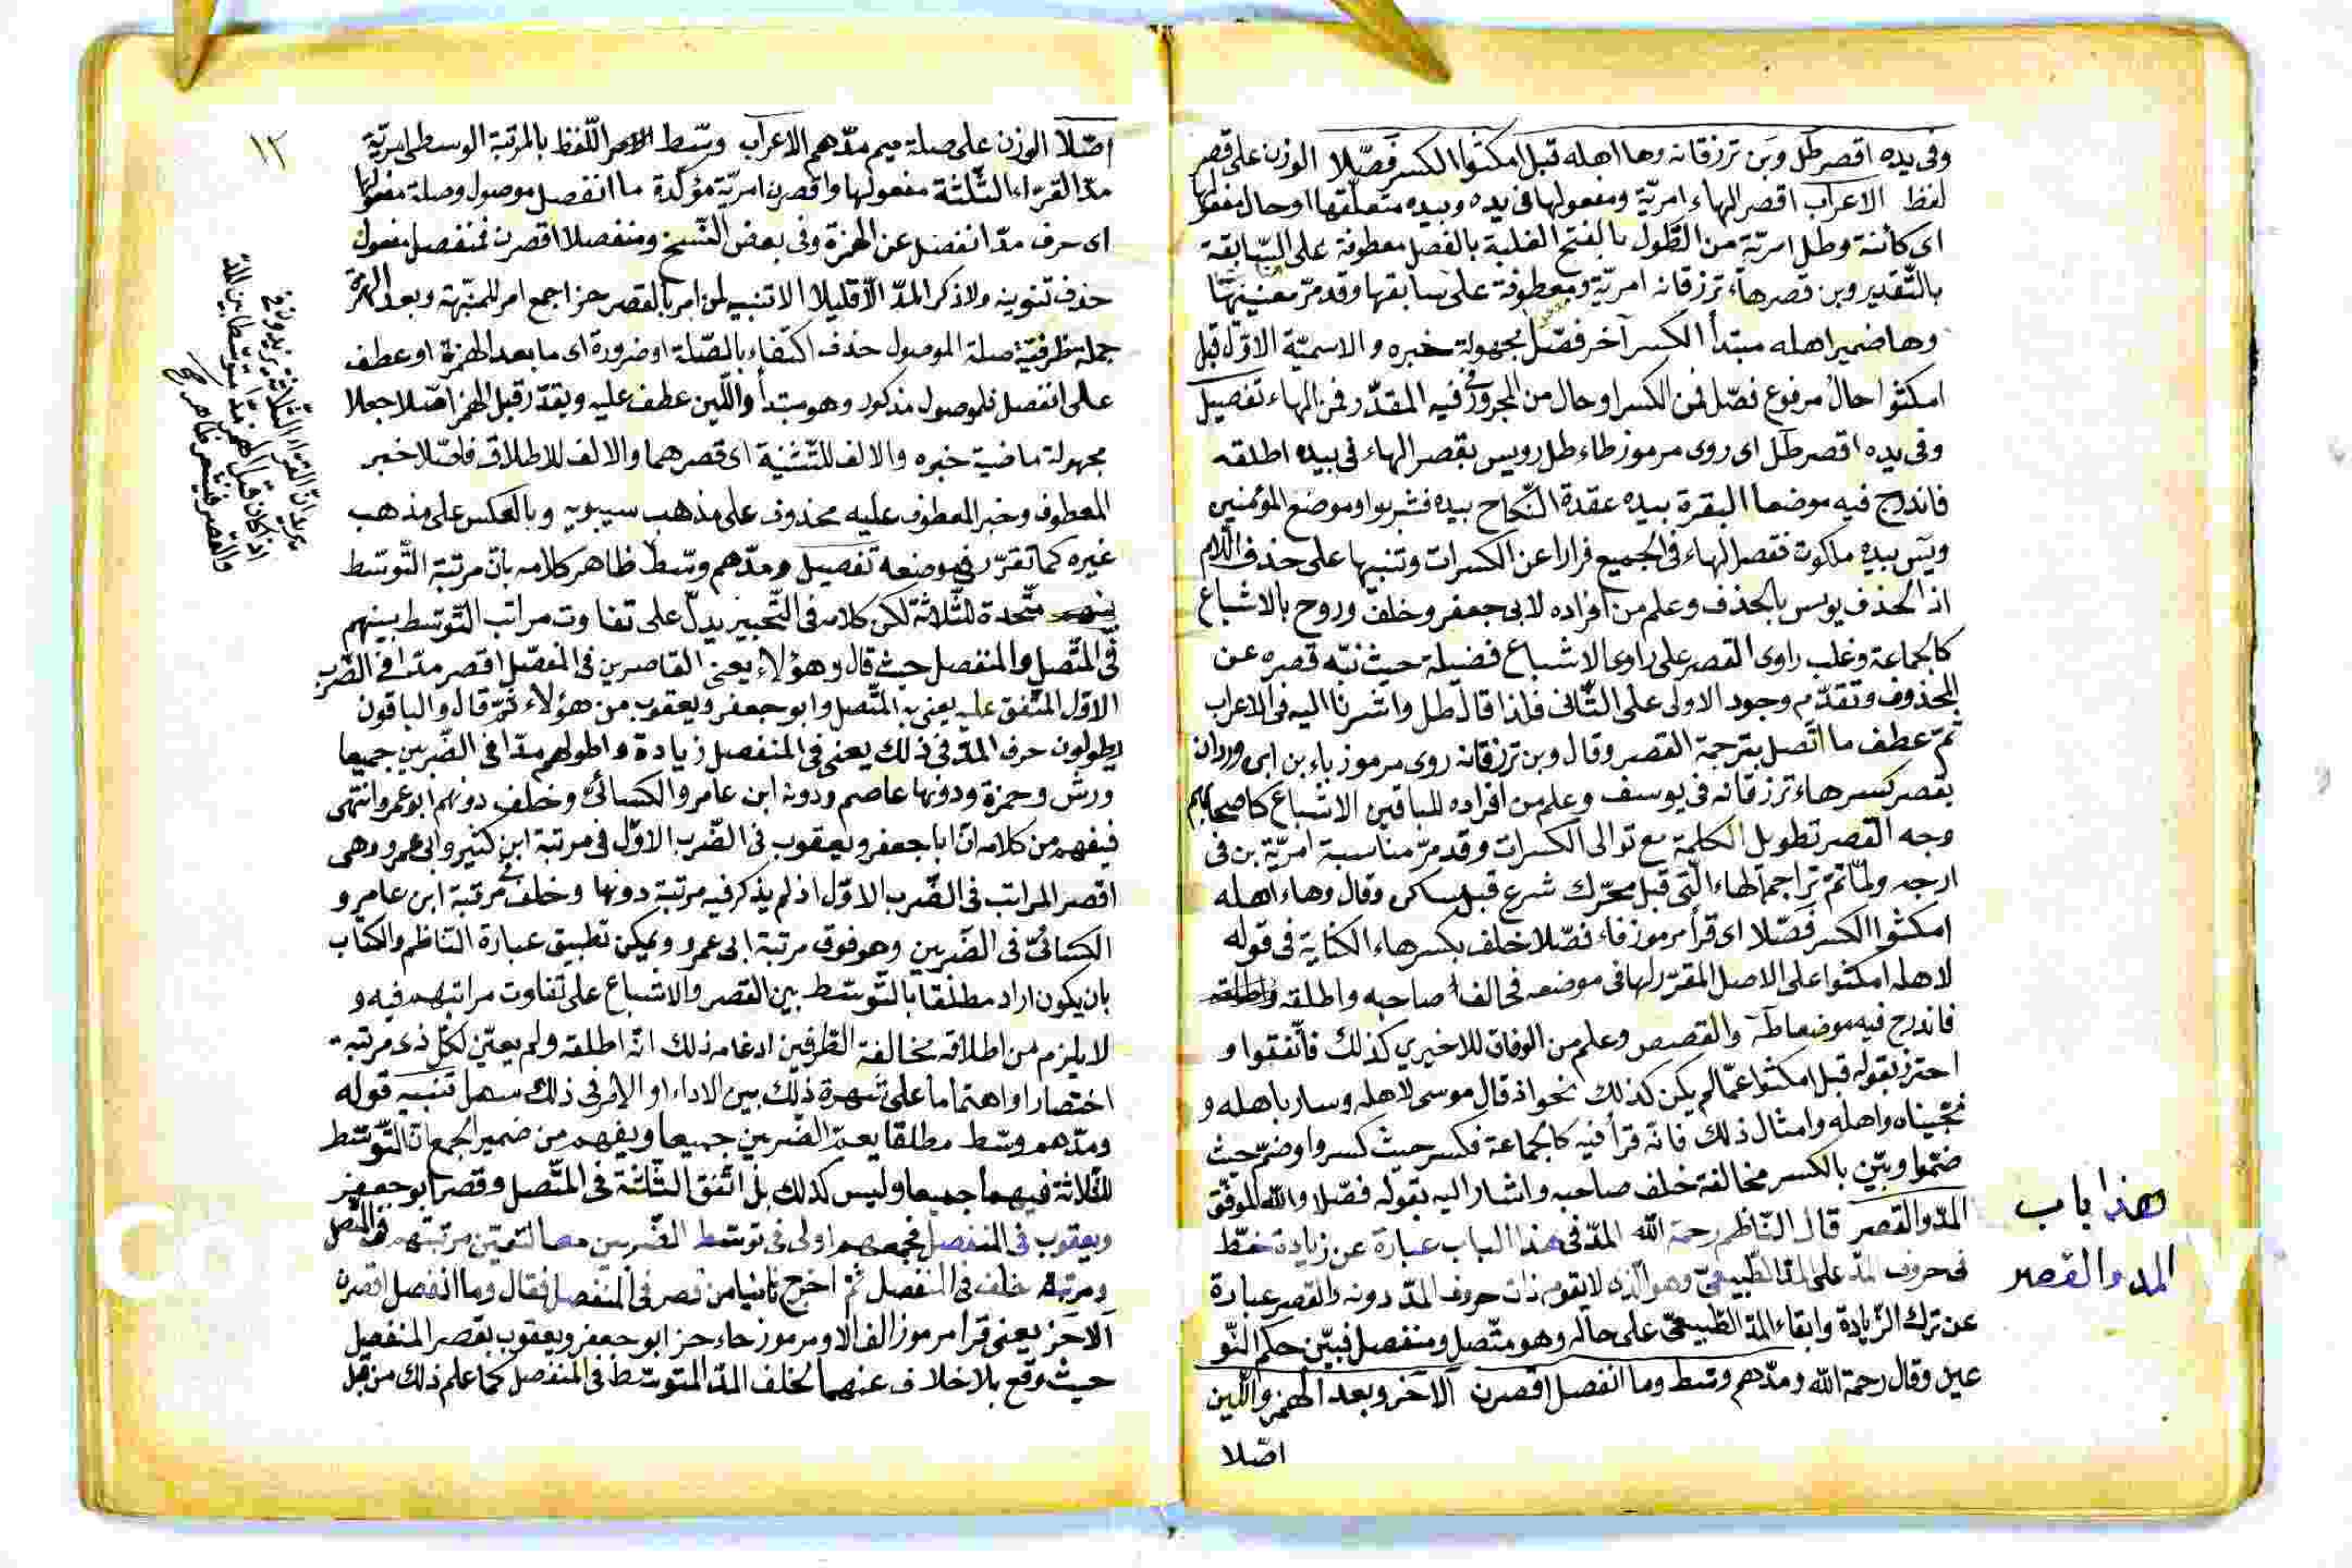 وفى يده اقصر طل وبن ترزقانه وها اهله قبل امكثوا الكسر فصّلا الوزن على قصر
لفظ الاعراب اقصر الهاء امريّة ومفعولها فى يده وبيده متعلّقها او حال مفعولها
اى كائنة وطل امريّة من الطّول بالفتح الغلبة بالفصل معطوفة على السّابقة
بالتّقدير وبن قصر هاء ترزقانه امريّة ومعطوفة على سابقها وقد مرّ معنييهما
وها ضمير اهله مبتدأ الكسر آخر فصّل مجهولة خبره والاسميّة الاوّل قبل
امكثوا حال مرفوع فصّل فمن الكسر او حال من المجرور فى فيه المقدّر فمن الهاء تفصيل
وفى يده اقصر طل اى روى مرموز طاء طل رويس بقصر الهاء فى بيده اطلقه
فاندرج فيه موضعا البقرة بيده عقدة النّكاح بيده فشربوا وموضع المؤمنين
ويس بيده ملكوت فقصر الهاء فى الجميع فرارا عن الكسرات وتنبيها على حذف اللام
اذ الحذف يونس بالحذف وعلم من افراده لابى جعفر وخلف وروح بالاشباع
كالجماعة وغلب راوى القصر على راوى الاشباع فضيلة حيث نبّه قصره عن
المحذوف وتقدّم وجود الاولى على الثّانى فلذا قال طل واشرنا اليه فى الاعراب
ثمّ عطف ما اتّصل بترجمة القصر وقال وبن ترزقانه روى مرموز باء بن ابى وردان
بقصر كسر هاء ترزقانه فى يوسف وعلم من افراده للباقين الاشباع كاصحابهم
وجه القصر تطويل الكلمة مع توالى الكسرات وقد مرّ مناسبة امريّة بن فى
ارجه ولمّا تمّ تراجم الهاء الّتى قبل محرّك شرع قبل ساكن وقال وهاء اهله
امكثوا الكسر فصّلا اى قرأ مرموز فاء فصّلا خلف بكسر هاء الكناية فى قوله
لاهله امكثوا على الاصل المقرّر لها فى موضعه فخالف صاحبه واطلقه
فاندرج فيه موضعا طه والقصص وعلم من الوفاق للاخيرى كذلك فاتّفقوا و
احترز بقوله قبل امكثوا عمّا لم يكن كذلك نحو اذ قال موسى لاهله وسار باهله و
فنجّيناه واهله وامثال ذلك فانّه قرأ فيه كالجماعة فكسر حيث كسروا وضمّ حيث
ضمّوا وبيّن بالكسر مخالفة خلف صاحبه واشار اليه بقوله فصّلا والله الموفّق
هذا باب
المد والقصر
المدّ والقصر قال النّاظم رحمة الله المدّ فى هذا الباب عبارة عن زيادة مطّ
فى حروف المدّ على المدّ الطّبيعىّ وهو الّذى لا يقوم ذات حروف المدّ دونه والقصر عبارة
عن ترك الزّيادة وابقاء المدّ الطّبيعىّ على حاله وهو متّصل ومنفصل فبيّن حكم النّو
عين وقال رحمة الله ومدّهم وسّط وما انفصل اقصرن الا حز وبعد الهمز واللّين
اصّلا
١٢
اصّلا الوزن على صلة ميم مدّهم الاعراب وسّط اللّفظ بالمرتبة الوسطى امريّة
مدّ القرّاء الثّلثة مفعولها واقصرن امريّة مؤكّدة ما انفصل موصول وصلة مفعولها
اى حرف مدّ انفصل عن الهمزة وفى بعض النّسخ ومنفصلا اقصرن فمنفصل مفعول
حذف تنوينه ولاذكر المدّ الّا قليلا الا تنبيه لمن امر بالقصر حز اجمع امر للمنبّهة وبعد الهمزة
جملة ظرفيّة صلة الموصول حذف اكتفاء بالصّلة او ضرورة اى ما بعد الهمزة او عطف
على انفصل فلموصول مذكور وهو مبتدأ واللّين عطف عليه ويقدّر قبل الهمز اصّلا جعلا
مجهولة ماضية خبره والالف للتّثنية اى قصرهما والالف للاطلاق فاصّلا خبر
المعطوف وخبر المعطوف عليه محذوف على مذهب سيبويه وبالعكس على مذهب
غيره كما تقرّر فى موضعه تفصيل ومدّهم وسّط ظاهر كلامه بانّ مرتبة التّوسّط
متّحدة للثّلاثة لكن كلامه فى التّحبير يدلّ على تفاوت مراتب التّوسّط بينهم
فى المتّصل والمنفصل حيث قال وهؤلاء يعنى القاصرين فى المنفصل اقصر مدّا فى الضّرب
الاوّل المتّفق عليه يعنى به المتّصل وابو جعفر ويعقوب من هؤلاء ثمّ قال والباقون
يطولون حرف المدّ فى ذلك يعنى فى المنفصل زيادة واطولهم مدّا فى الضّربين جميعا
ورش وحمزة ودونها عاصم ودونه ابن عامر والكسائىّ وخلف دونهم ابو عمرو انتهى
فيفهم من كلامه انّ ابا جعفر ويعقوب فى الضّرب الاوّل فى مرتبة ابن كثير وابى عمرو وهى
اقصر المراتب فى الضّرب الاوّل اذ لم يذكر فيه مرتبة دونها وخلف فى مرتبة ابن عامر و
الكسائىّ فى الضّربين وهو فوق مرتبة ابى عمرو ويمكن تطبيق عبارة النّاظم والكتاب
بان يكون اراد مطلقا بالتّوسّط بين القصر والاشباع على تفاوت مراتبهم فيه و
لا يلزم من اطلاقه مخالفة الطّرفين ادغامه ذلك انّه اطلقه ولم يعيّن لكلّ ذى مرتبة
اختصارا واهتماما على شهرة ذلك بين الاداء او الامر فى ذلك سهل تنبيه قوله
ومدّهم وسّط مطلقا يعمّ الضّربين جميعا ويفهم من ضمير الجمع انّ التّوسّط
للثّلاثة فيهما جميعا وليس كذلك بل اتّفق الثّلثة فى المتّصل وقصر ابو جعفر
ويعقوب فى المنفصل فجمعهم اولى فى توسّط الضّربين معا لتعيّن مرتبتهم فى المتّصل
ومرتبة خلف فى المنفصل ثمّ اخرج ثانيا من قصر فى المنفصل فقال وما انفصل اقصرن
الا حز يعنى قرأ مرموز الف الا ومرموز حاء حز ابو جعفر ويعقوب بقصر المنفصل
حيث وقع بلا خلاف عنهما لخلف المدّ المتوسّط فى المنفصل كما علم ذلك من قبل
يريد انّ القرّاء الثّلاثة يزيدون فى
اذا كان قبل الهمز مدّا متوسّطا بين المدّ
والقصر